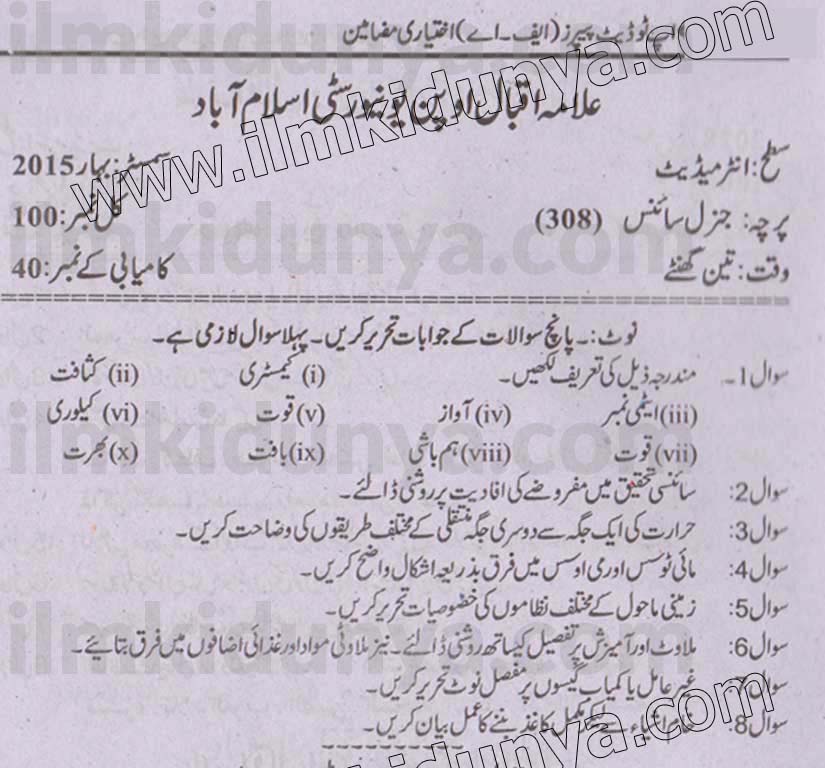 اپ ٹو ڈیٹ پیپرز (ایف۔اے) اختیاری مضامین
علامہ اقبال اوپن یونیورسٹی اسلام آباد
سطح: انٹرمیڈیٹ سمسٹر: بہار 2015
پرچہ: جنرل سائنس (308) کل نمبر: 100
وقت: تین گھنٹے کامیابی کے نمبر: 40
نوٹ:۔ پانچ سوالات کے جوابات تحریر کریں۔ پہلا سوال لازمی ہے۔
سوال 1۔ مندرجہ ذیل کی تعریف لکھیں۔ (i) کیمسٹری (ii) کثافت
(iii) ایٹمی نمبر (iv) آواز (v) قوت (vi) کیلوری
(vii) قوت (viii) ہم باشی (ix) بافت (x) بھرت
سوال 2: سائنسی تحقیق میں مفروضے کی افادیت پر روشنی ڈالئے۔
سوال 3: حرارت کی ایک جگہ سے دوسری جگہ منتقلی کے مختلف طریقوں کی وضاحت کریں۔
سوال 4: مائی ٹوسس اور می اوسس میں فرق بذریعہ اشکال واضح کریں۔
سوال 5: زمینی ماحول کے مختلف نظاموں کی خصوصیات تحریر کریں۔
سوال 6: ملاوٹ اور آمیزش پر تفصیل کیساتھ روشنی ڈالئے۔ نیز ملاوٹی مواد اور غذائی اضافوں میں فرق بتائیے۔
سوال 7: غیر عامل یا کمیاب گیسوں پر مفصل نوٹ تحریر کریں۔
سوال 8: خام اشیاء سے لیکر مکمل کاغذ بننے کا عمل بیان کریں۔
www.ilmkidunya.com
ilmkidunya.com
ilmkidunya.com
ilmkidunya.com
ilmkidunya.com
ilmkidunya.com